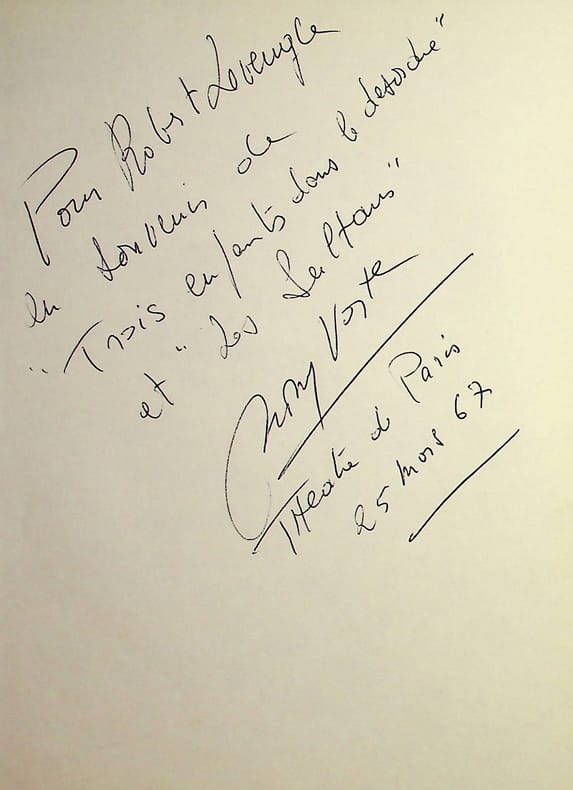 Pour Robert Leveugle
en souvenir de
"Trois enfants dans le désordre"
et "Les Sultans"
Rosy Varte
Théatre de Paris
25 Mars 67